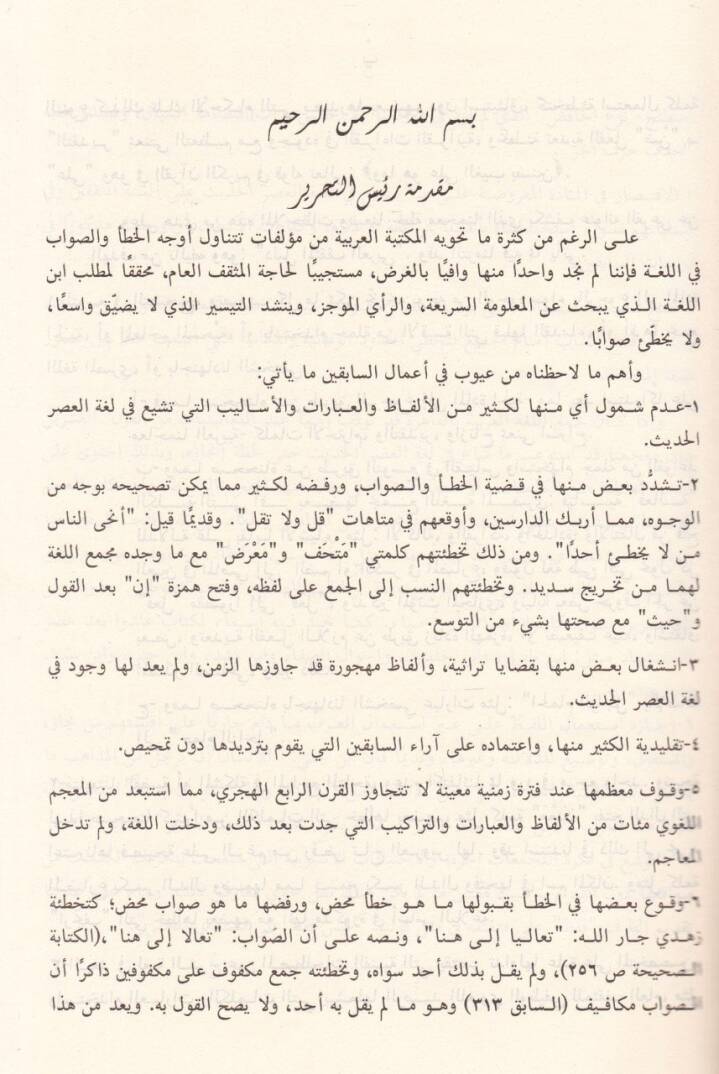 بسم الله الرحمن الرحيم
مقدمة رئيس التحرير
على الرغم من كثرة ما تحويه المكتبة العربية من مؤلفات تتناول أوجه الخطأ والصواب
في اللغة فإننا لم نجد واحدًا منها وافيًا بالغرض، مستجيبًا لحاجة المثقف العام، محققًا لمطلب ابن
اللغة الذي يبحث عن المعلومة السريعة، والرأي الموجز، وينشد التيسير الذي لا يضيّق واسعًا،
ولا يخطّئ صوابًا.
وأهم ما لاحظناه من عيوب في أعمال السابقين ما يأتي:
١-عدم شمول أي منها لكثير من الألفاظ والعبارات والأساليب التي تشيع في لغة العصر
الحديث.
٢-تشدُّد بعض منها في قضية الخطأ والصواب، ورفضه لكثير مما يمكن تصحيحه بوجه من
الوجوه، مما أربك الدارسين، وأوقعهم في متاهات "قل ولا تقل". وقديمًا قيل: "أنحى الناس
من لا يخطئ أحدًا". ومن ذلك تخطئتهم كلمتي "مَتْحَف" و"مَعْرَض" مع ما وجده مجمع اللغة
لهما من تخريج سديد. وتخطئتهم النسب إلى الجمع على لفظه، وفتح همزة "إن" بعد القول
و"حيث" مع صحتها بشيء من التوسع.
٣-انشغال بعض منها بقضايا تراثية، وألفاظ مهجورة قد جاوزها الزمن، ولم يعد لها وجود في
لغة العصر الحديث.
٤-تقليدية الكثير منها، واعتماده على آراء السابقين التي يقوم بترديدها دون تمحيص.
٥-وقوف معظمها عند فترة زمنية معينة لا تتجاوز القرن الرابع الهجري، مما استبعد من المعجم
اللغوي مئات من الألفاظ والعبارات والتراكيب التي جدت بعد ذلك، ودخلت اللغة، ولم تدخل
المعاجم.
٦-وقوع بعضها في الخطأ بقبولها ما هو خطأ محض، ورفضها ما هو صواب محض؛ كتخطئة
زهدي جار الله: "تعاليا إلى هنا"، ونصه على أن الصَواب: "تعالا إلى هنا"،(الكتابة
الصحيحة ص ٢٥٦)، ولم يقل بذلك أحد سواه، وتخطئته جمع مكفوف على مكفوفين ذاكرًا أن
الصواب مكافيف (السابق ٣١٣) وهو ما لم يقل به أحد، ولا يصح القول به. ويعد من هذا